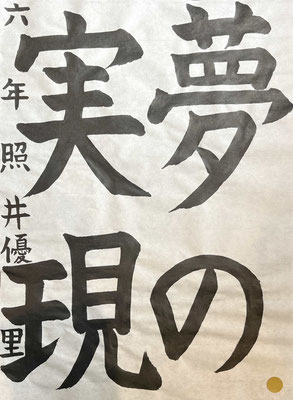 夢の
実現
六年照井優里